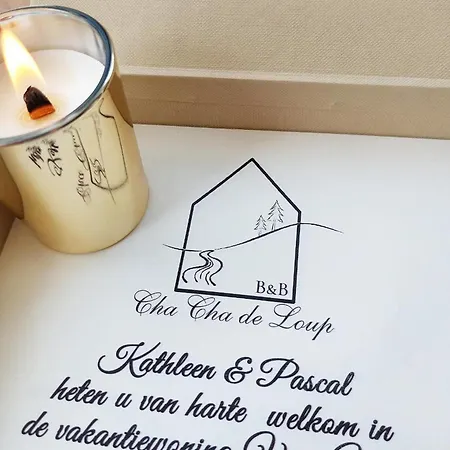 B&B
Cha Cha de Loup
Kathleen & Pascal
heten u van harte welkom in
de vakantiewoning